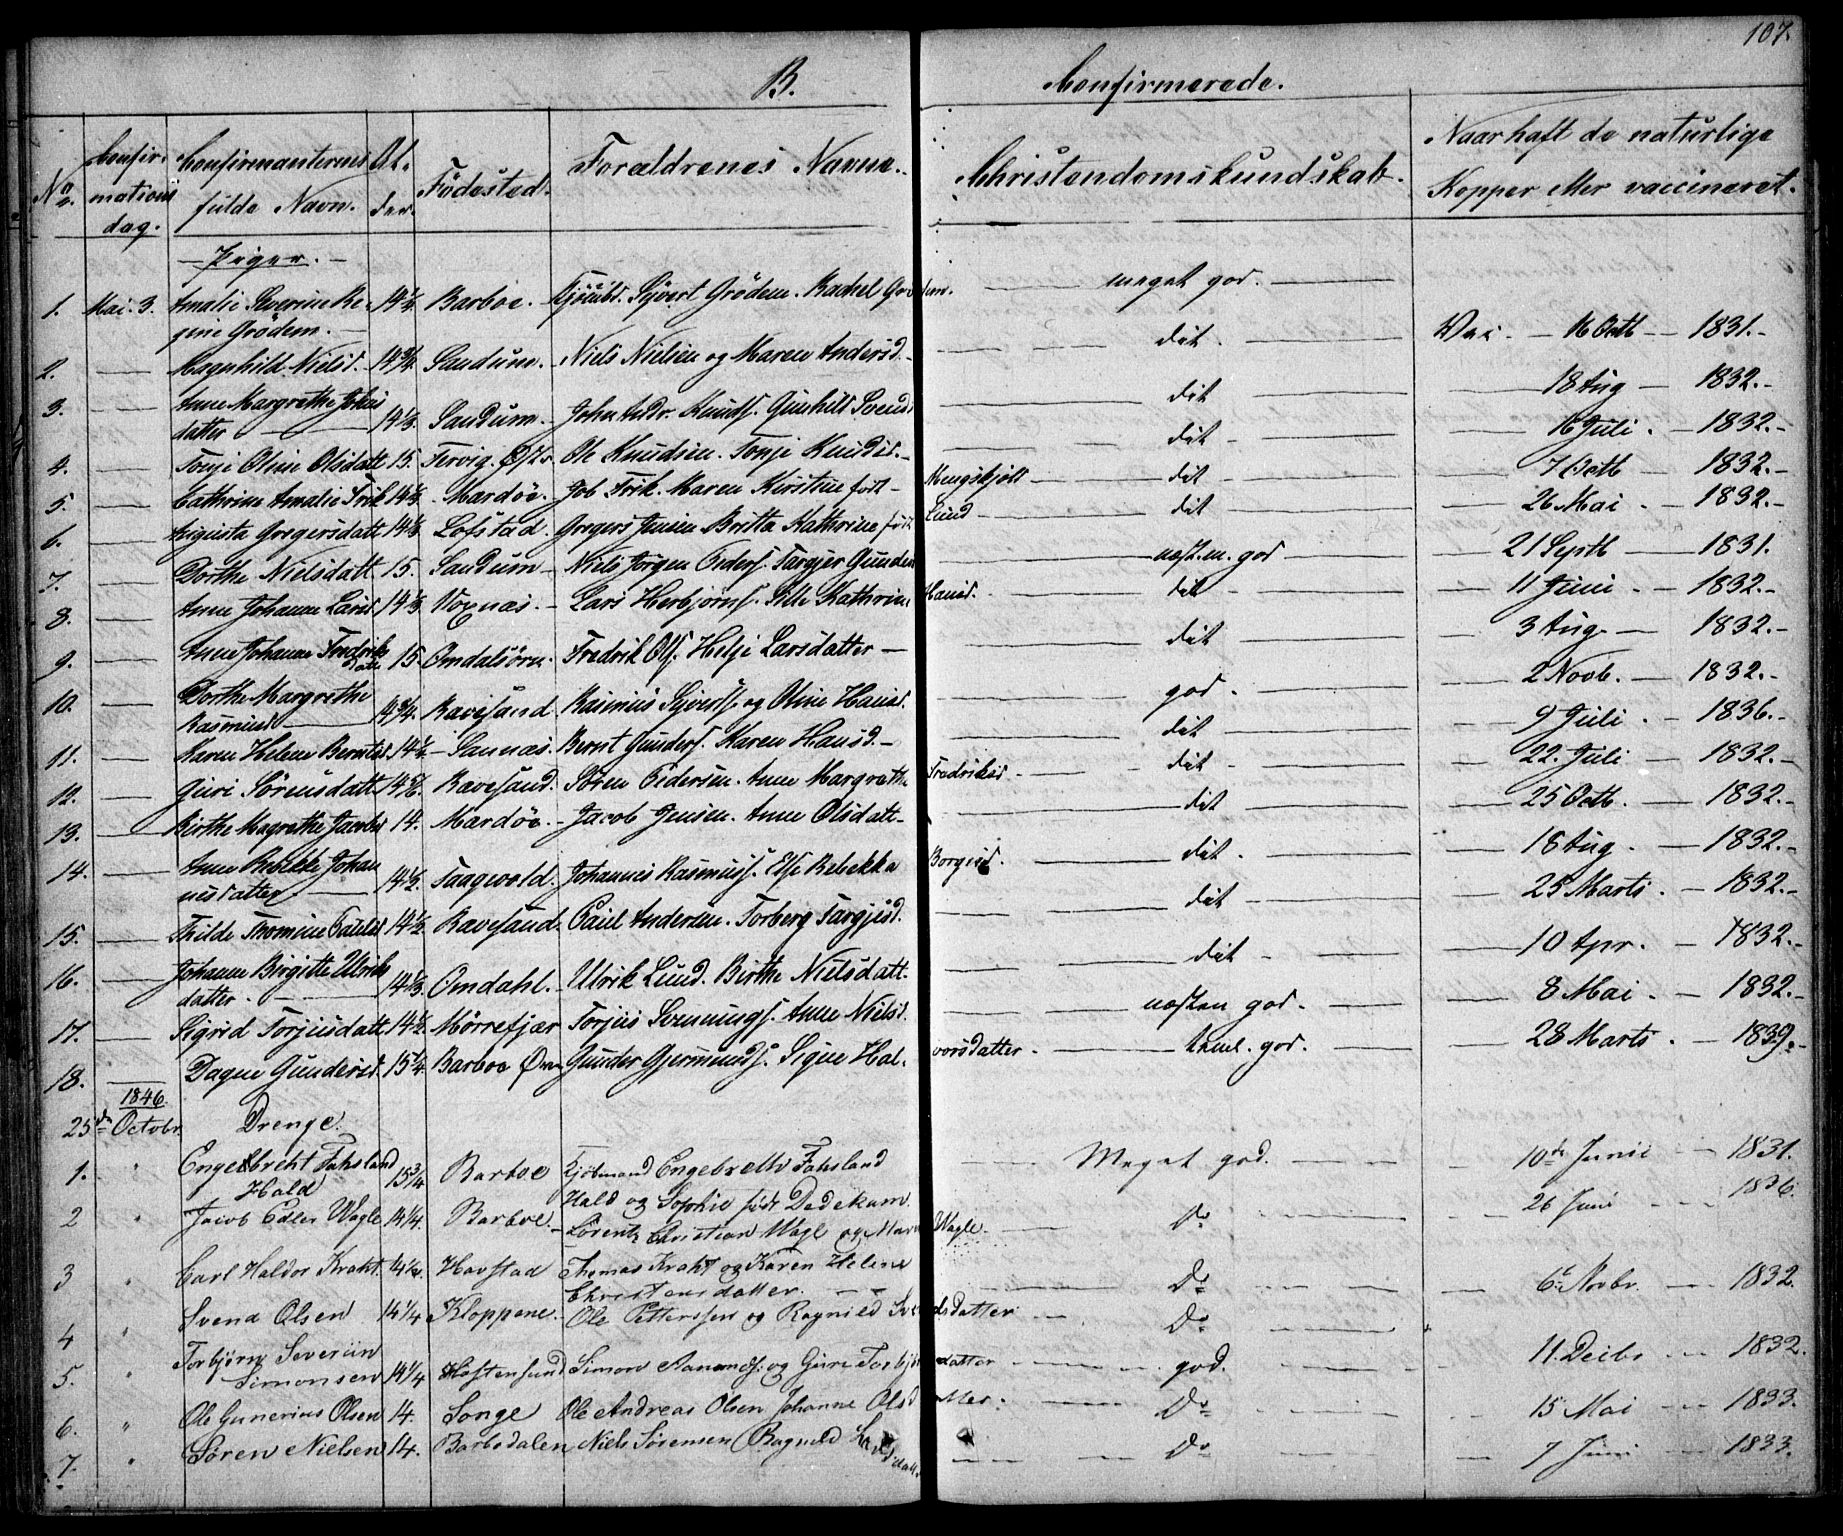 107.
B. Confirmerede.
No. Confirmations dag. Confirmanternes fulde Navn. Alder. Fødested. Forældrenes Navne. Christendomskundskab. Naar haft de naturlige Kopper eller vaccineret.
— Piger. —
1. Mai. 3. Amalie Severine Re- 14½ Barboe. Sivert Grödem. Rachel meget god.
gine Grödem. —
2. — Magnhild Nielsd. 14¾ Sandum. Niels Nielsen og Maren Andersd. — dit. — Vac. — 16 Octb — 1831. —
3. — Anne Margrethe Johns 14⅓ Sandum. John Andr. Knuds. Gunhild Svends dit — 18 Aug — 1832. —
datter —
4. — Tonje Oline Olsdatt 15. Tervig. Østr Ole Knudsen. Tonje Knudsd. — dit — 16 Juli. — 1832. —
5. — Cathrine Amalie Frik 14⅓ Mardöe. Job Frik. Maren Kirstine født — Mengskjolt — dit — 7 Octb — 1832. —
6. — Augusta Gregersdatt 14⅓ Lofstad. Gregers Jensen Britta Kathrine født Lund — dit — 26 Mai. — 1832. —
7. — Dorthe Nielsdatt 15. Sandum — Niels Jörgen Peders. Targjer Gunders næst.m. god — 21 Septb — 1831.
8. — Anne Johanne Larsd 14⅓ Voxnæs. — Lars Herbjørns. Sille Kathrine Hansd. — dit — 11 Juni — 1832. —
9. — Anne Johanne Fredriks 15. Omdalsøren. Fredrik Ols. Helje Larsdatter — dit — 3 Aug. — 1832. —
datter
10. — Dorthe Margrethe 14¾. Ravesand Rasmus Siverts. og Oline Hansd. god. — 2 Novb. — 1832. —
Rasmusd —
11. — Karen Helene Berntsd 14½ — Sannæs. Bernt Gunders. Karen Hansd. — dit — 9 Juli. — 1836. —
12. — Guri Sörensdatt 14 Ravesand. Sören Pedersen. Anne Margrethe Fredriksd — dit — 22 Juli — 1832. —
13. — Birthe Magrethe Jacobsd 14. Mardöe. — Jacob Jensen. Anne Olsdatt — dit — 25 Octb. — 1832. —
14. — Anne Rebekke Johan 14½ Saagvold. Johannes Rasmuss. Else Rebekka Borgisd. — dit. — 18 Aug. — 1832. —
nesdatter —
15. — Thilde Thomine Paulsd 14½ Ravesand. Paul Andersen. Torberg Targjesd. dit — 25 Marts. — 1832. —
16. — Johanne Birgitte Ulriks 14⅓. Omdahl. — Ulrik Lund. Birthe Nielsdatt. dit — 10 Apr. — 1832. —
datter. —
17. — Sigrid Torjusdatt 14½ Mörrefjær Torjus Svennings. Anne Nielsd. næsten god. — 8 Mai. — 1832. —
18. — Dagne Gundersd. 15¼ Barboe Gunder Gjermunds. Signe Hal- vorsdatter. — teml. god. — 28 Marts. — 1839. —
1846
25de Octobr. Drenge.
1. " Engelbreht Fahsland 15¾ Barboe Kjöbmand Engebreth Fahsland Meget god. 10de Junii 1831.
Hald Hald og Sophie født Dedekam.
2 " Jacob Edler Wagle 14¼. Barboe. Lörentz Christian Wagl og Maren Wagle. Do 26 Juni 1836.
3 " Carl Haldor Kraht. 14¼. Havstad Thomas Kraht og Karen Helene Do 6te Novbr. 1832.
Christensdatter. —
4 " Svend Olsen 14¼ Kloppene. Ole Petterssen og Ragnild Svendsdatter Do
5. " Torbjørn Severiin 14¼ Haftensund Simon Aanonds. og Guri Torbjörnsdatter god. 11. Decbr 1832.
Simonsen
6. " Ole Gunerius Olsen 14. Songe Ole Andreas Olsen Johanne Olsdatter. Do 15 Mai 1833.
7. " Sören Nielsen 14. Barbodalen Niels Sörensen Ragnild Do 7 Juni 1833.